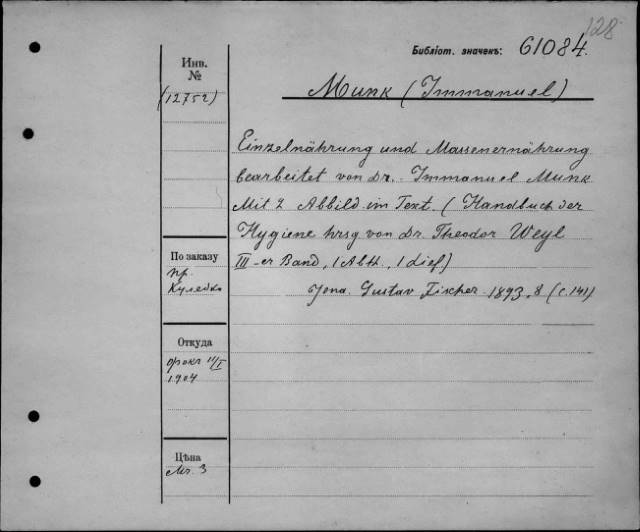 128
Библіот. значекъ: 61084.
Инв.
№
(12752)
Munk (Immanuel)
Einzelnährung und Massenernährung
bearbeitet von Dr. Immanuel Munk
Mit 2 Abbild im Text. (Handbuch der
Hygiene hrsg von Dr. Theodor Weyl
III-er Band, 1 Abth., 1 Lief)
Jena. Gustav Fischer 1893, 8 (с. 141)
По заказу
пр.
Откуда
11/I
1904
Цѣна
Mr. 3